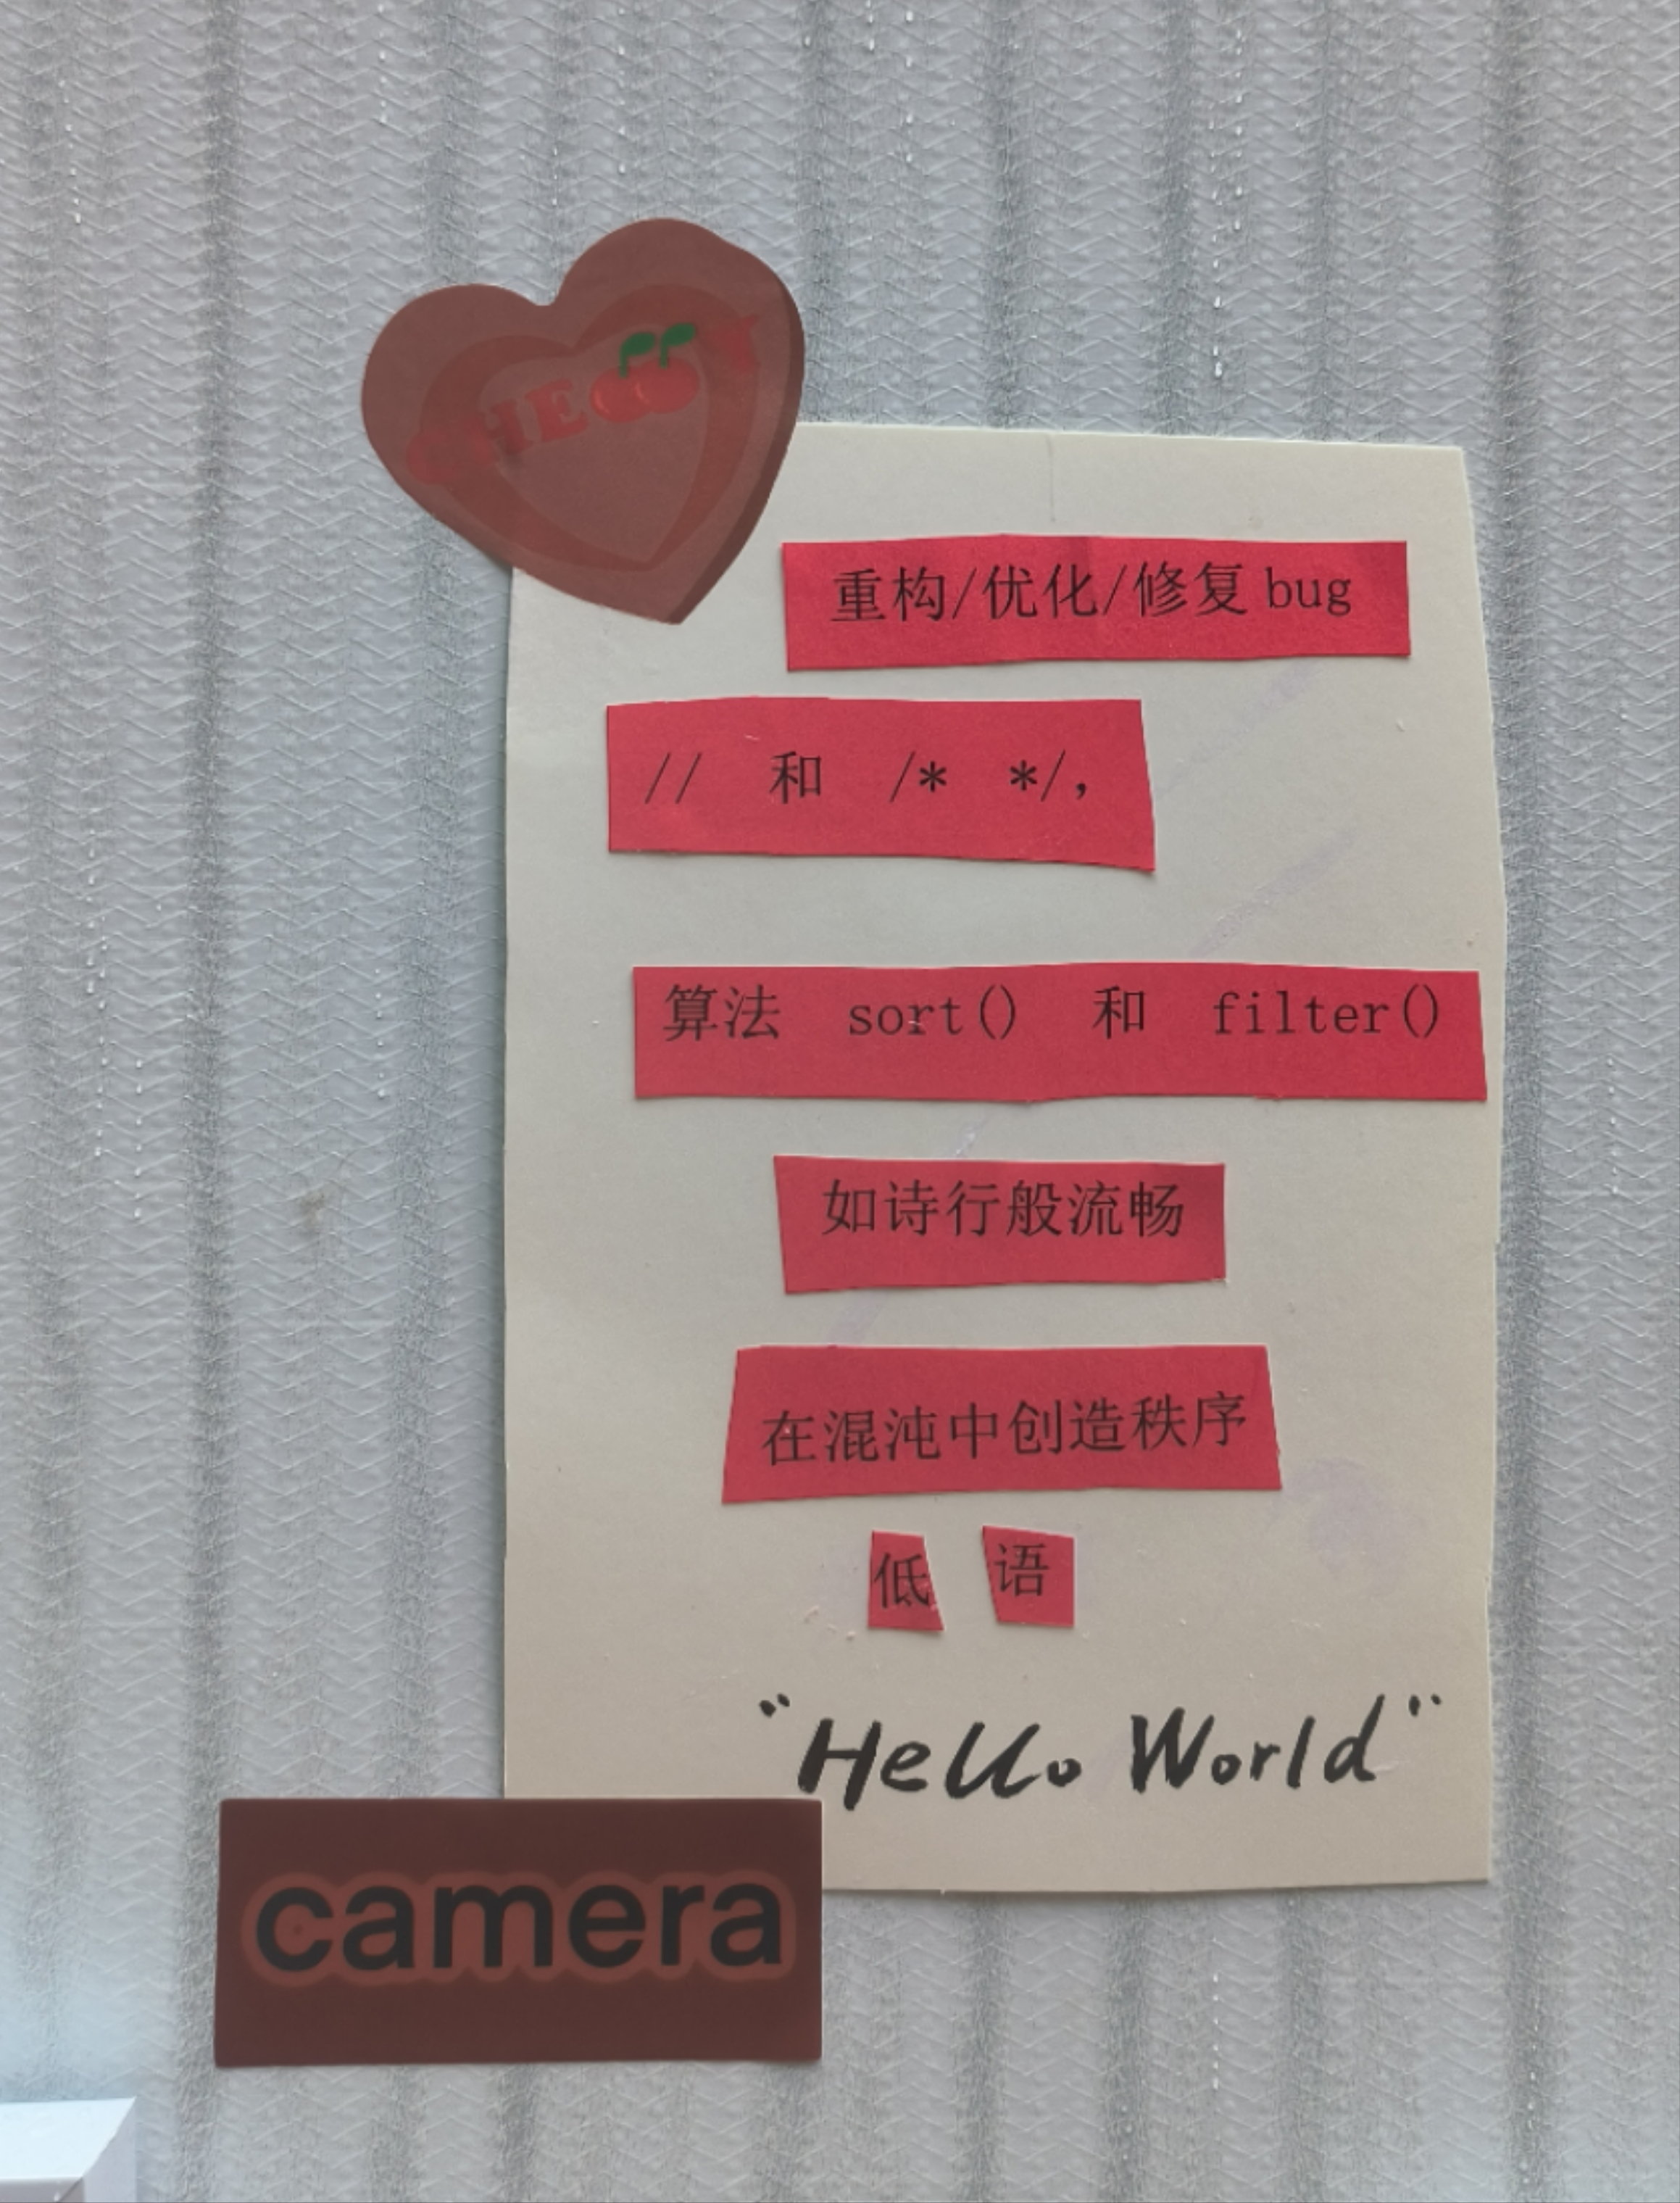 CHERRY
重构/优化/修复 bug
// 和 /* */，
算法 sort() 和 filter()
如诗行般流畅
在混沌中创造秩序
低 语
"Hello World"
camera